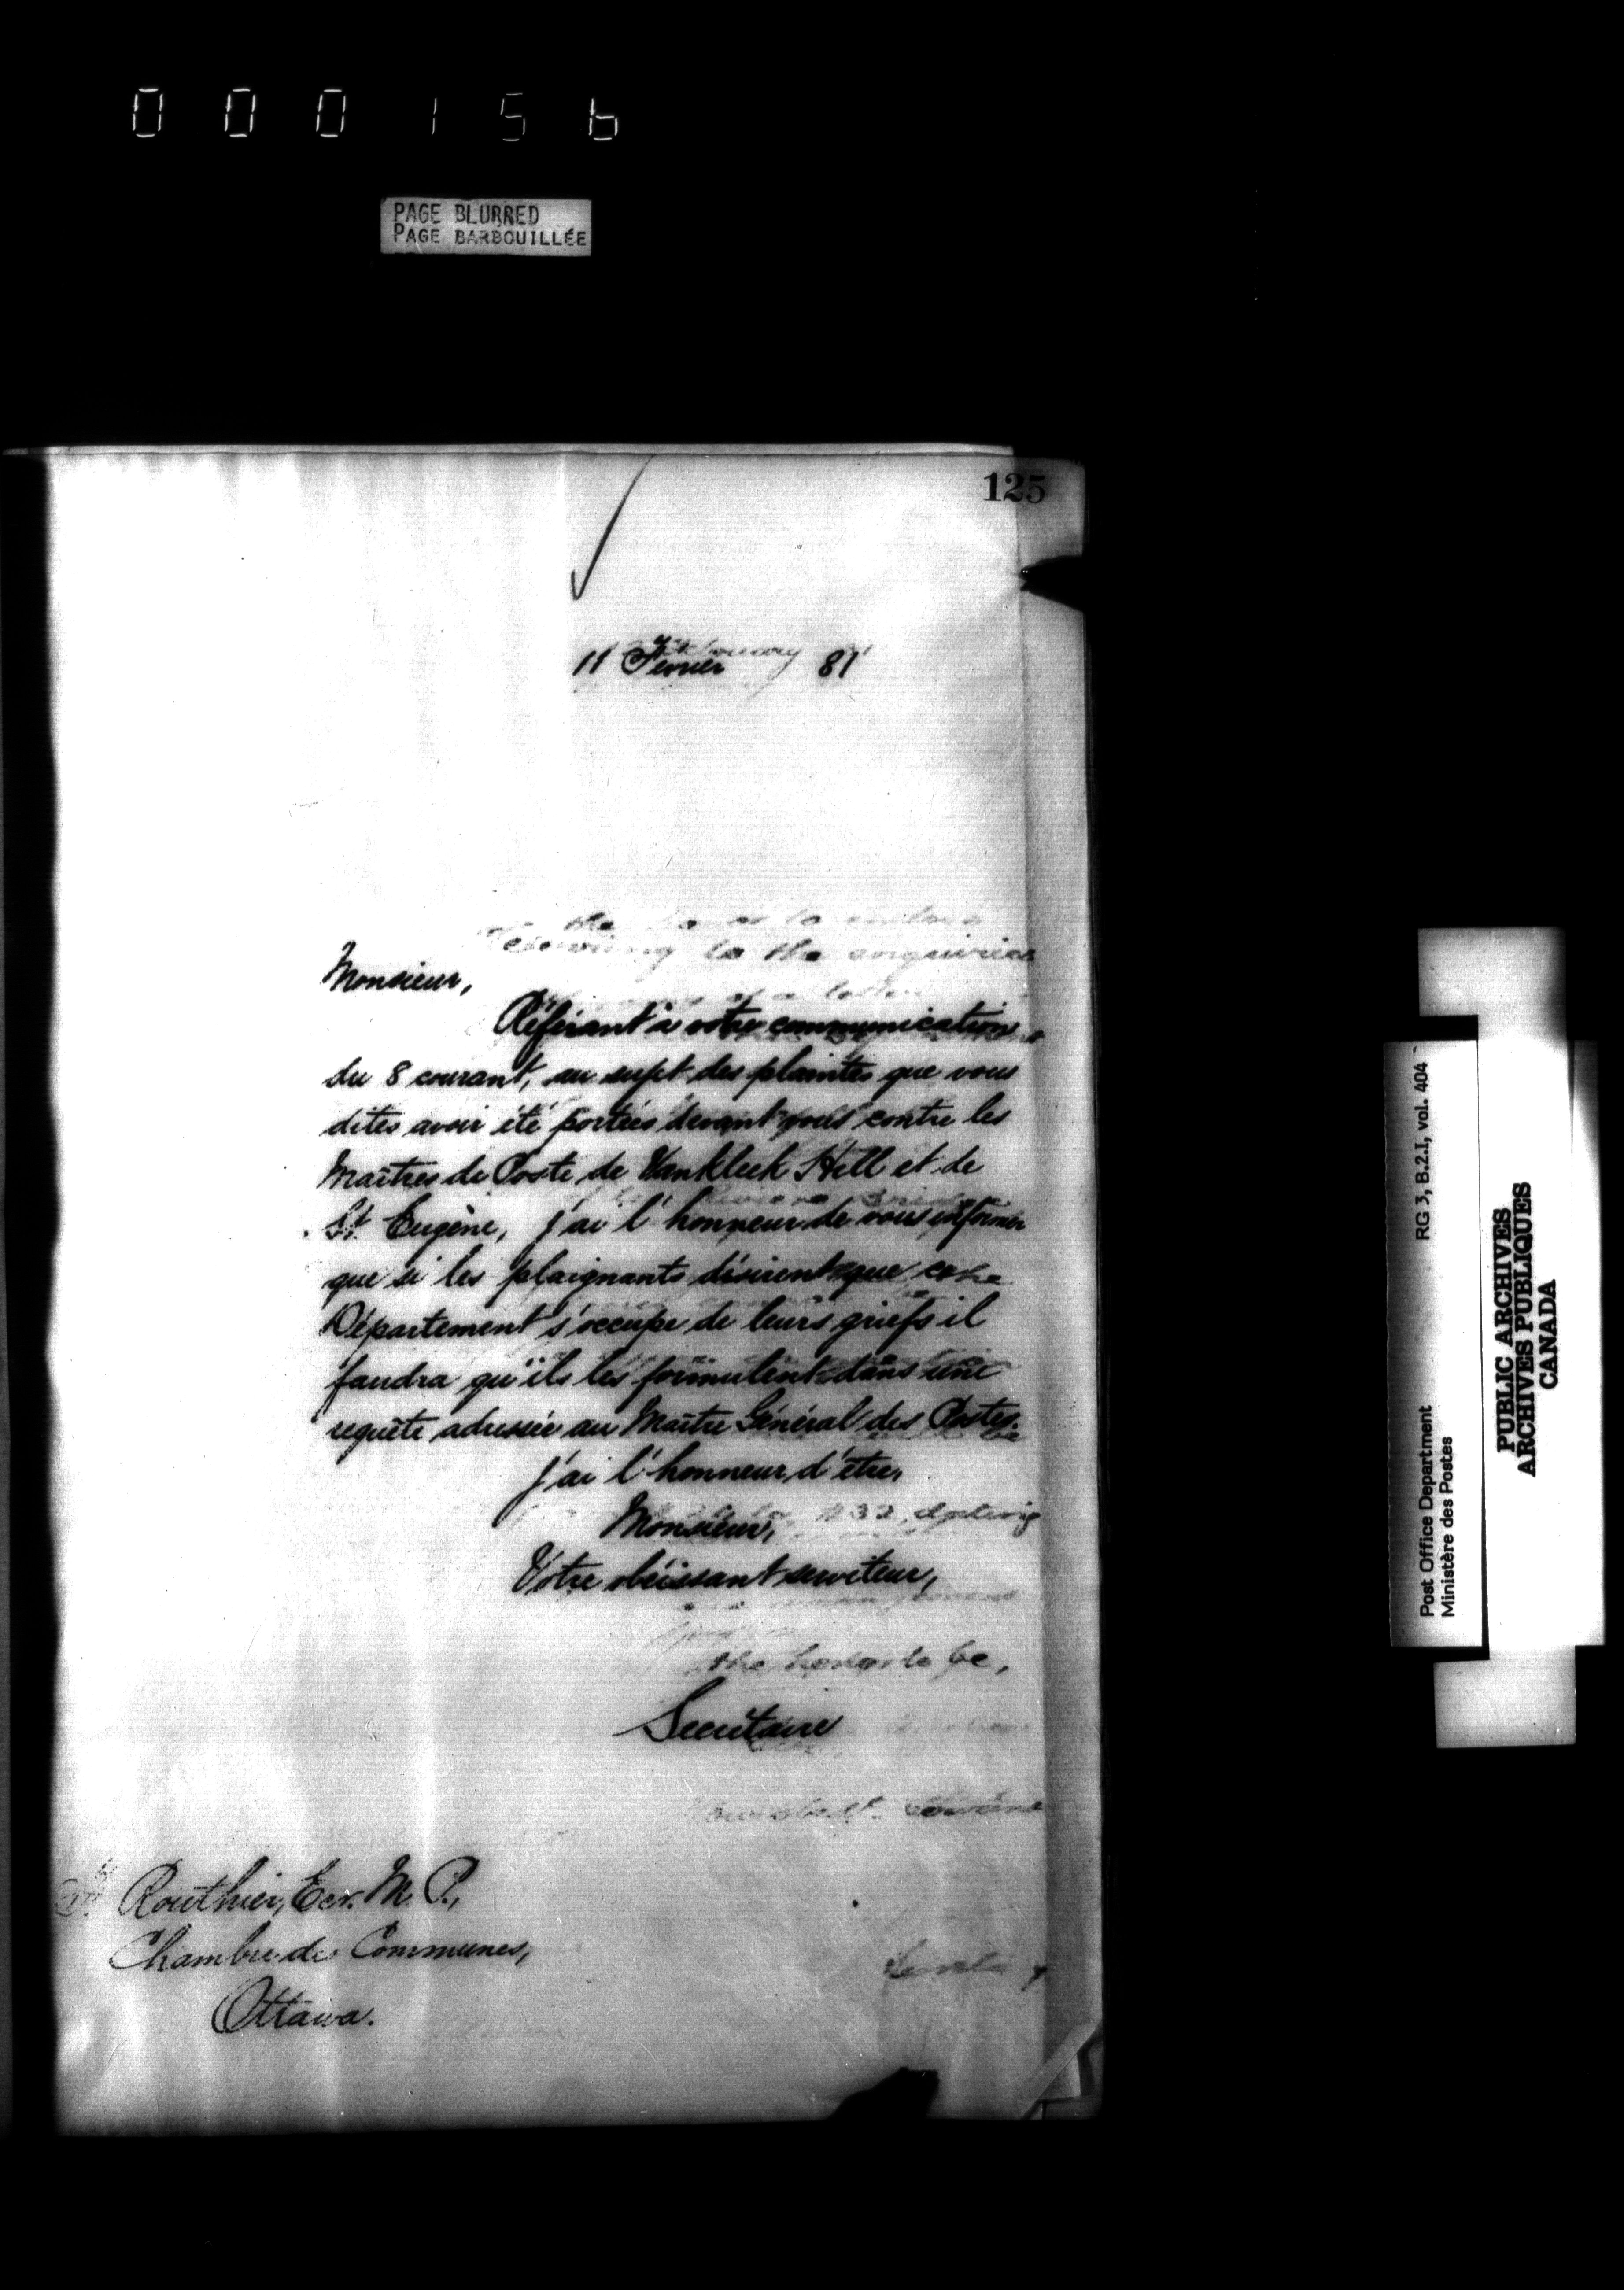 000156
PAGE BLURRED
PAGE BARBOUILLÉE
125
11 Fevrier 81
Monsieur,
Référant à votre communication
du 8 courant, au sujet des plaintes que vous
dites avoir été portées devant vous contre les
Maîtres de Poste de Vankleek Hill et de
St. Eugène, j'ai l'honneur de vous informer
que si les plaignants désirent que ce
Département s'occupe de leurs griefs il
faudra qu'ils les formulent dans une
requête adressée au Maître Général des Postes.
j'ai l'honneur d'être,
Monsieur,
Votre obéissant serviteur,
the honor to be,
Secrétaire
Routhier, Ecr. M. P.,
Chambre des Communes,
Ottawa.
Post Office Department RG 3, B.2.I, vol. 404
Ministère des Postes
PUBLIC ARCHIVES
ARCHIVES PUBLIQUES
CANADA